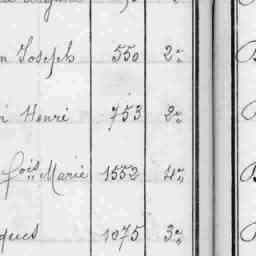 n Joseph 550 2e
i Henri 753 2e
fçois Marie 1552 4e
ques 1075 3e